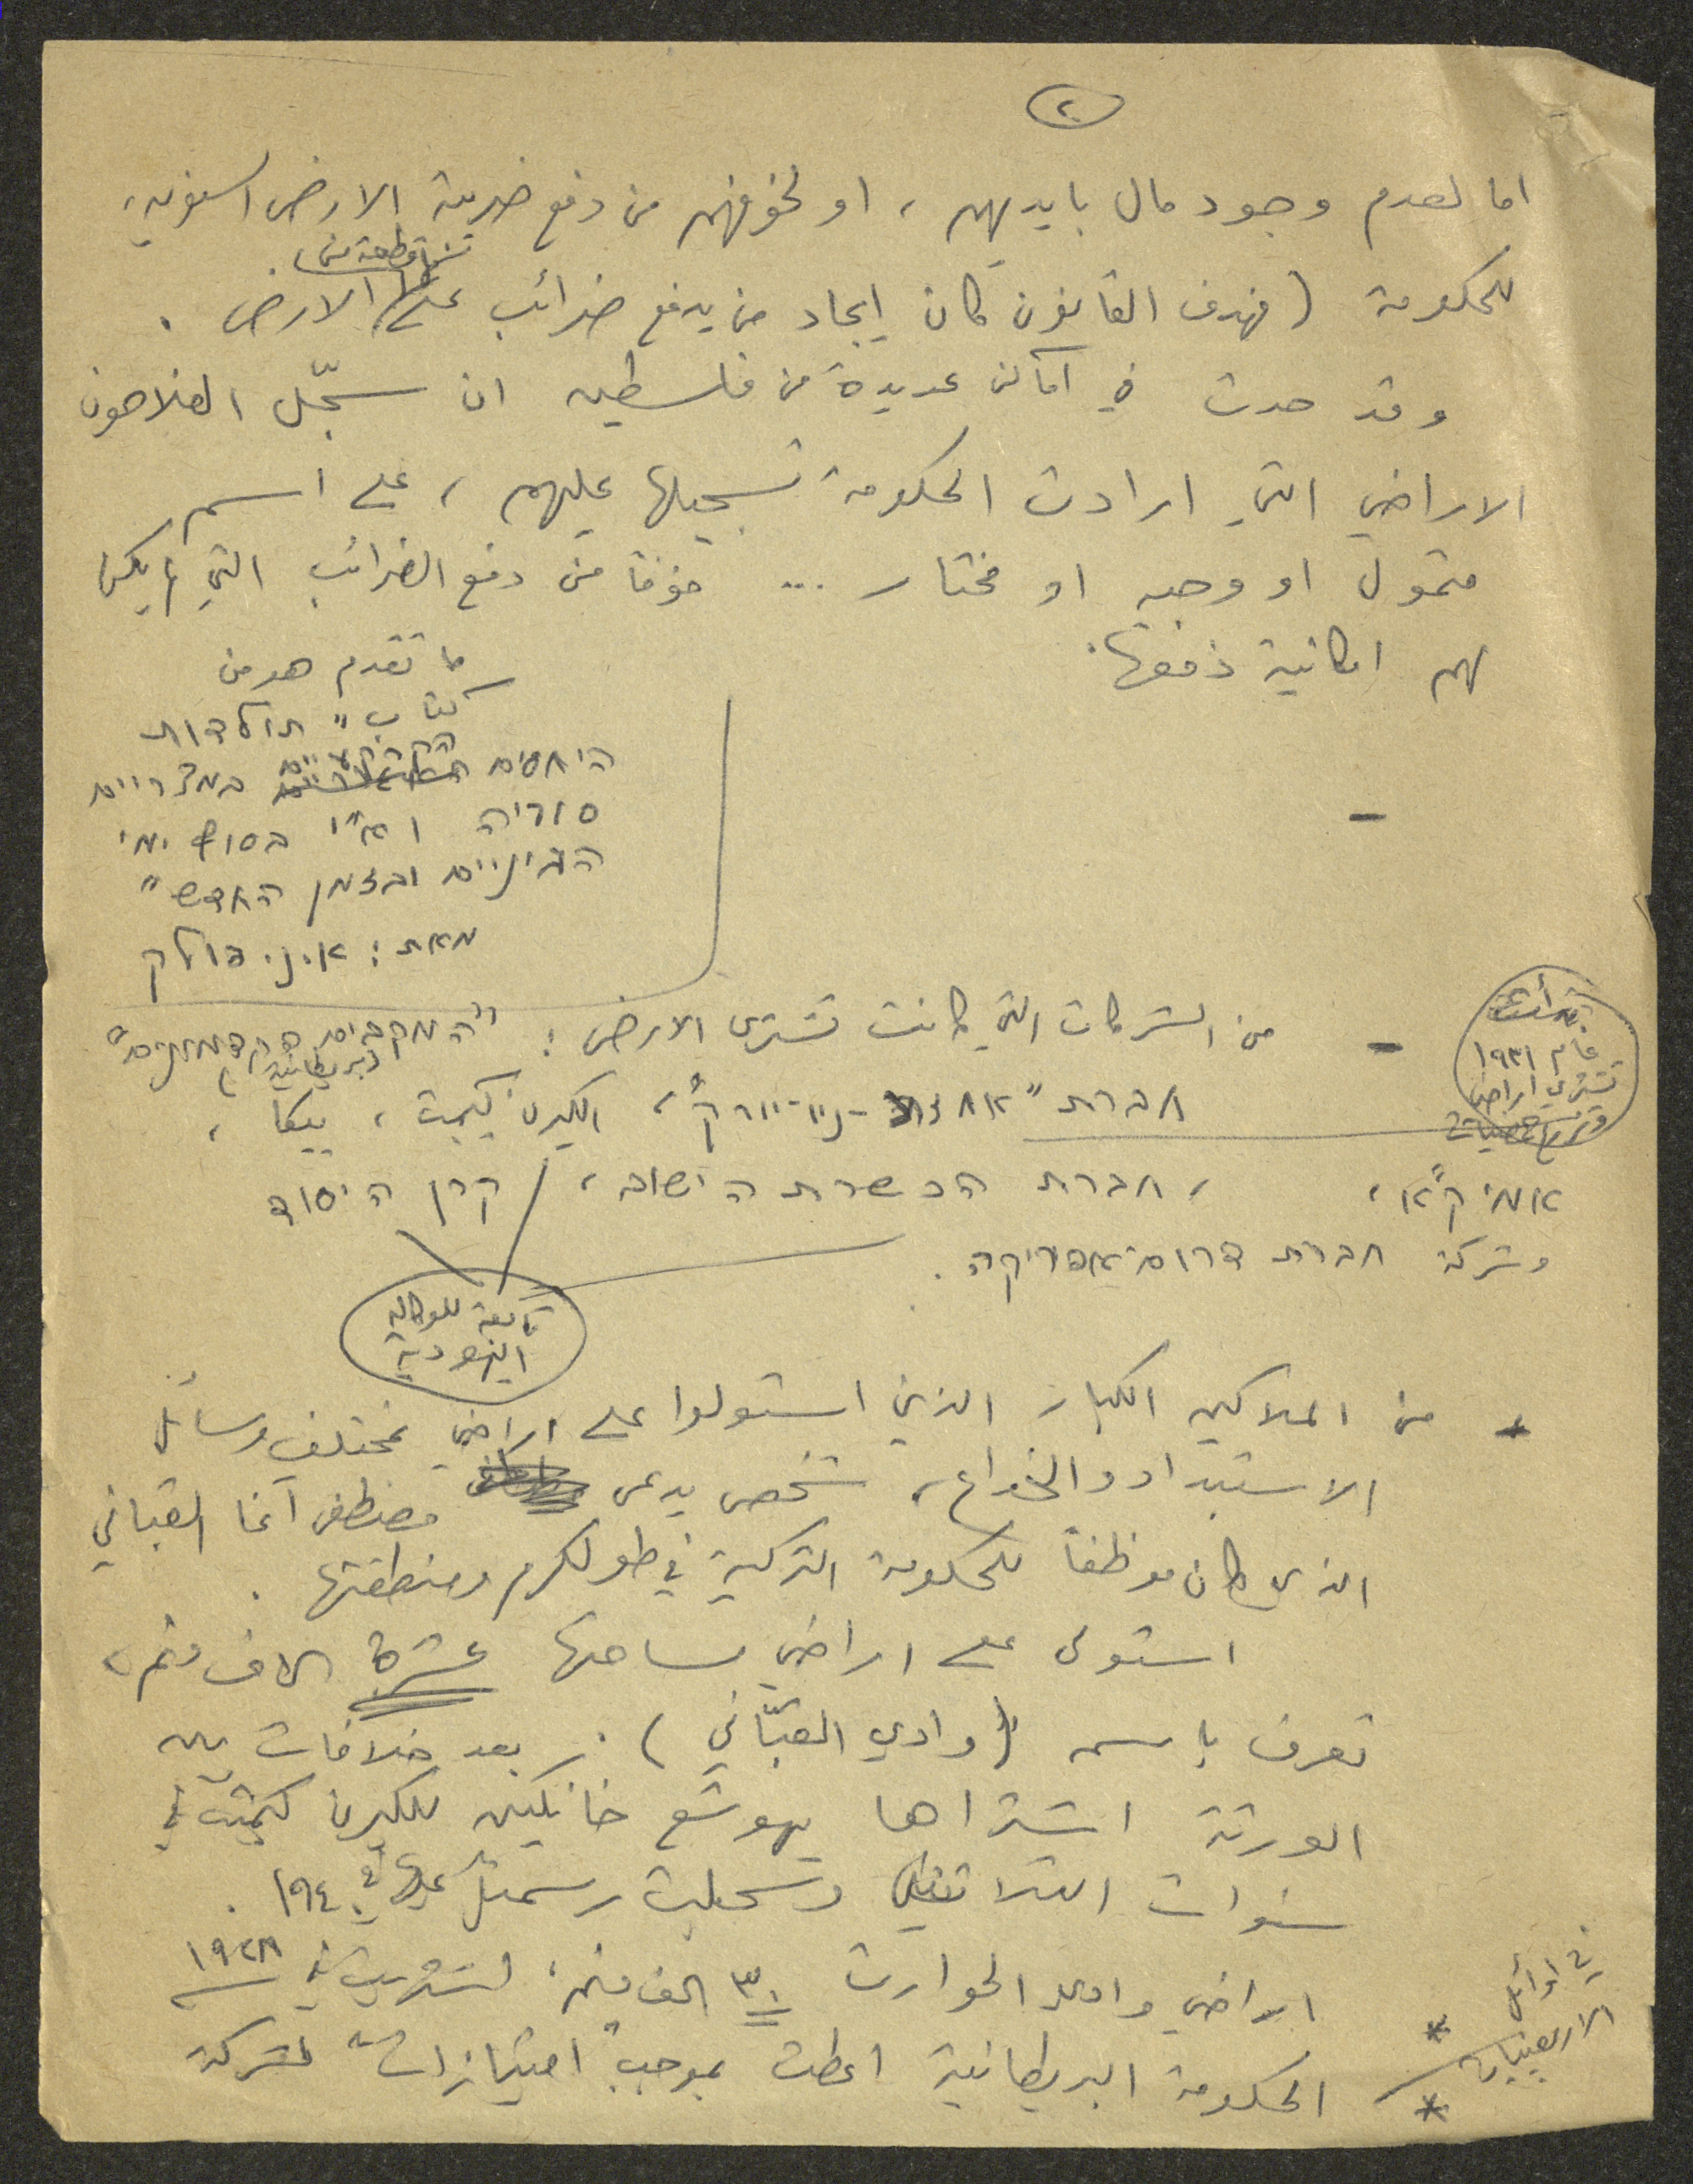 ٢
اما لعدم وجود مال بايديهم ، او لخوفهم من دفع ضريبة الارض السنوية،
للحكومة (فهدف القانون كان ايجاد من يدفع ضرائب على قطعة من الارض .
وقد حدث في اماكن عديدة من فلسطين ان سجّل الفلاحون
الاراضي التي ارادت الحكومة تسجيلها عليهم ، على اسم
متمول او وجيه او مختار ... خوفا من دفع الضرائب التي لم يكن
لهم امكانية دفعها.
ما تقدم هو من
كتاب " תולדות
היחסים החקלאיים במצריים
סוריה וא"י בסוף ימי
הביניים ובזמן החדש "
מאת : א.נ. פולק
- من الشركات التي كانت تشتري الارض : "המכבים הקדמונים"
بريطانية
بدأت
عام ١٩٣١
تشتري اراضي
חברת "אחוזת - ניו-יורק" ، الكيرن كييمت ، بيكا ،
אמיק"א ، ، חברת הכשרת הישוב ، קרן היסוד
وشركة חברת דרום אפריקה .
تابعة للوكالة
اليهودية
- من الملاكين الكبار الذين استولوا على اراضي بمختلف وسائل
الاستبداد والخداع ، شخص يدعى مصطفى آغا القباني
الذي كان موظفاً للحكومة التركية في طولكرم ومنطقتها .
استولى على اراضي مساحتها عشرة الاف دنم ،
تعرف باسم (وادي القبّاني) . بعد خلافات بين
الورثة اشتراها يهوشع خانكين للكيرن كييمت في
سنوات الثلاثين وسجلت رسمياً عام ١٩٤٠ .
اراضي وادي الحوارث ٣٠ الف دنم، اشتريت في ١٩٢٨
في اوائل
الاربعينيات
* الحكومة البريطانية اعطت بموجب "امتيازات" لشركة